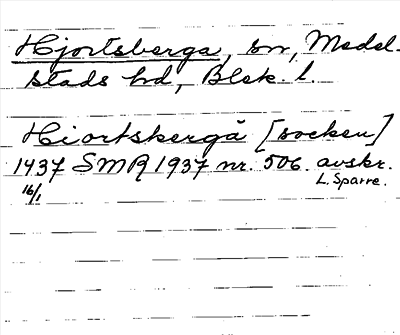 Hjortsberga, sn, Medel-
stads hd, Blek. l.
Hiortskergã [socken]
1437 SMR 1937 nr. 506. avskr.
16/1 L. Sparre.